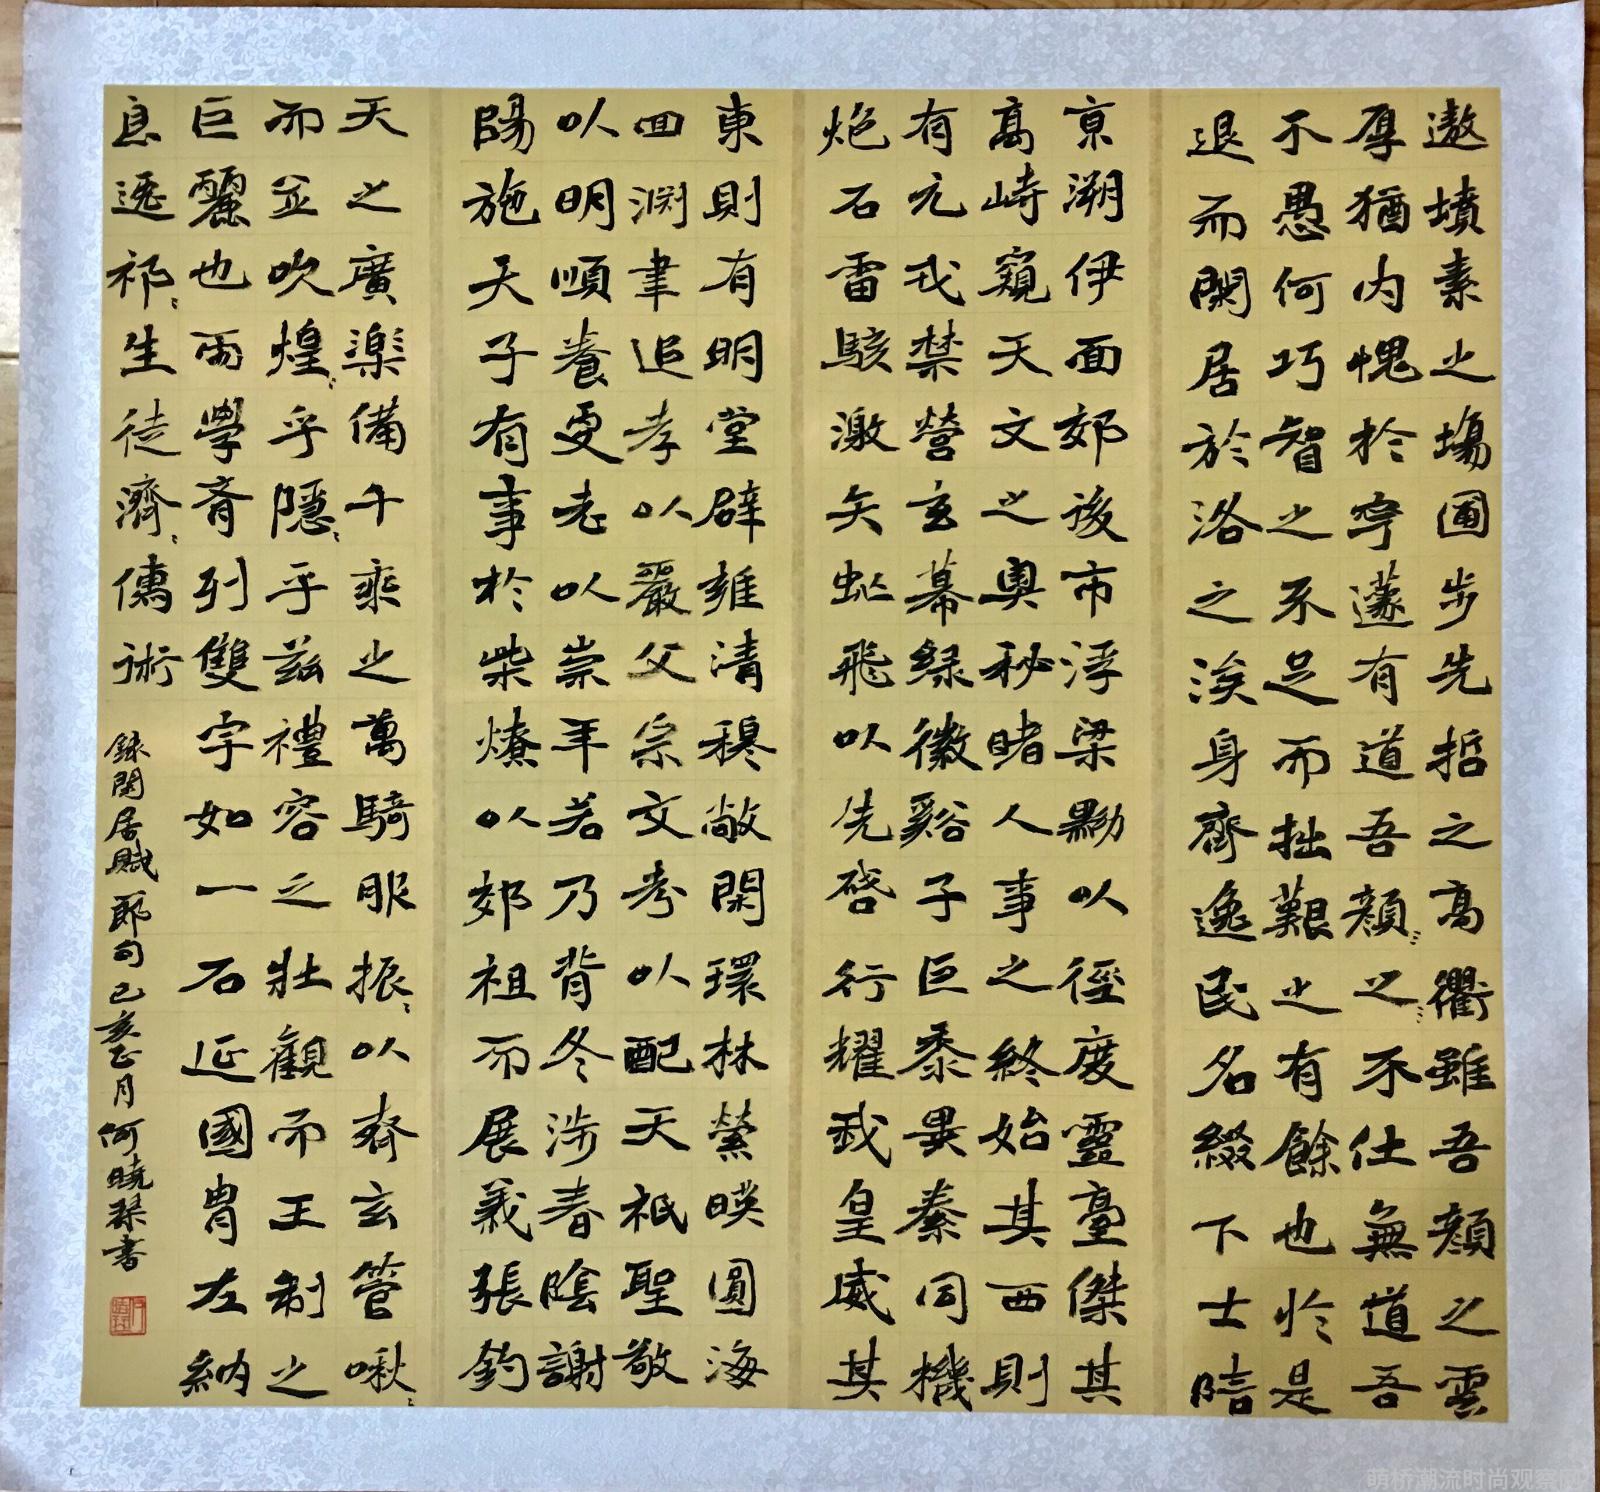 遨墳素之場圃步先哲之高衢雖吾顏之雲
厚猶内愧於寧蘧有道吾顏〻之〻不仕無道吾
不愚何巧智之不足而拙艱之有餘也於是
退而閑居於洛之涘身齊逸民名綴下士陪
京溯伊面郊後市浮梁黝以徑度靈臺傑其
高峙窺天文之奥秘睹人事之終始其西則
有元戎禁營玄幕緑徽谿子巨黍異絭同機
炮石雷駭激矢虻飛以先啓行耀我皇威其
東則有明堂辟雍清穆敞閑環林縈暎圓海
回淵聿追孝以嚴父宗文考以配天祇聖敬
以明順養更老以崇年若乃背冬涉春陰謝
陽施天子有事於柴燎以郊祖而展義張鈞
天之廣樂備千乘之萬騎服振〻以齊玄管啾〻
而並吹煌〻乎隱〻乎茲禮容之壯觀而王制之
巨麗也兩學齊列雙宇如一右延國胄左納
良逸祁〻生徒濟〻儒術
録閑居賦節句己亥正月何曉琴書
萌桥潮流时尚观察网